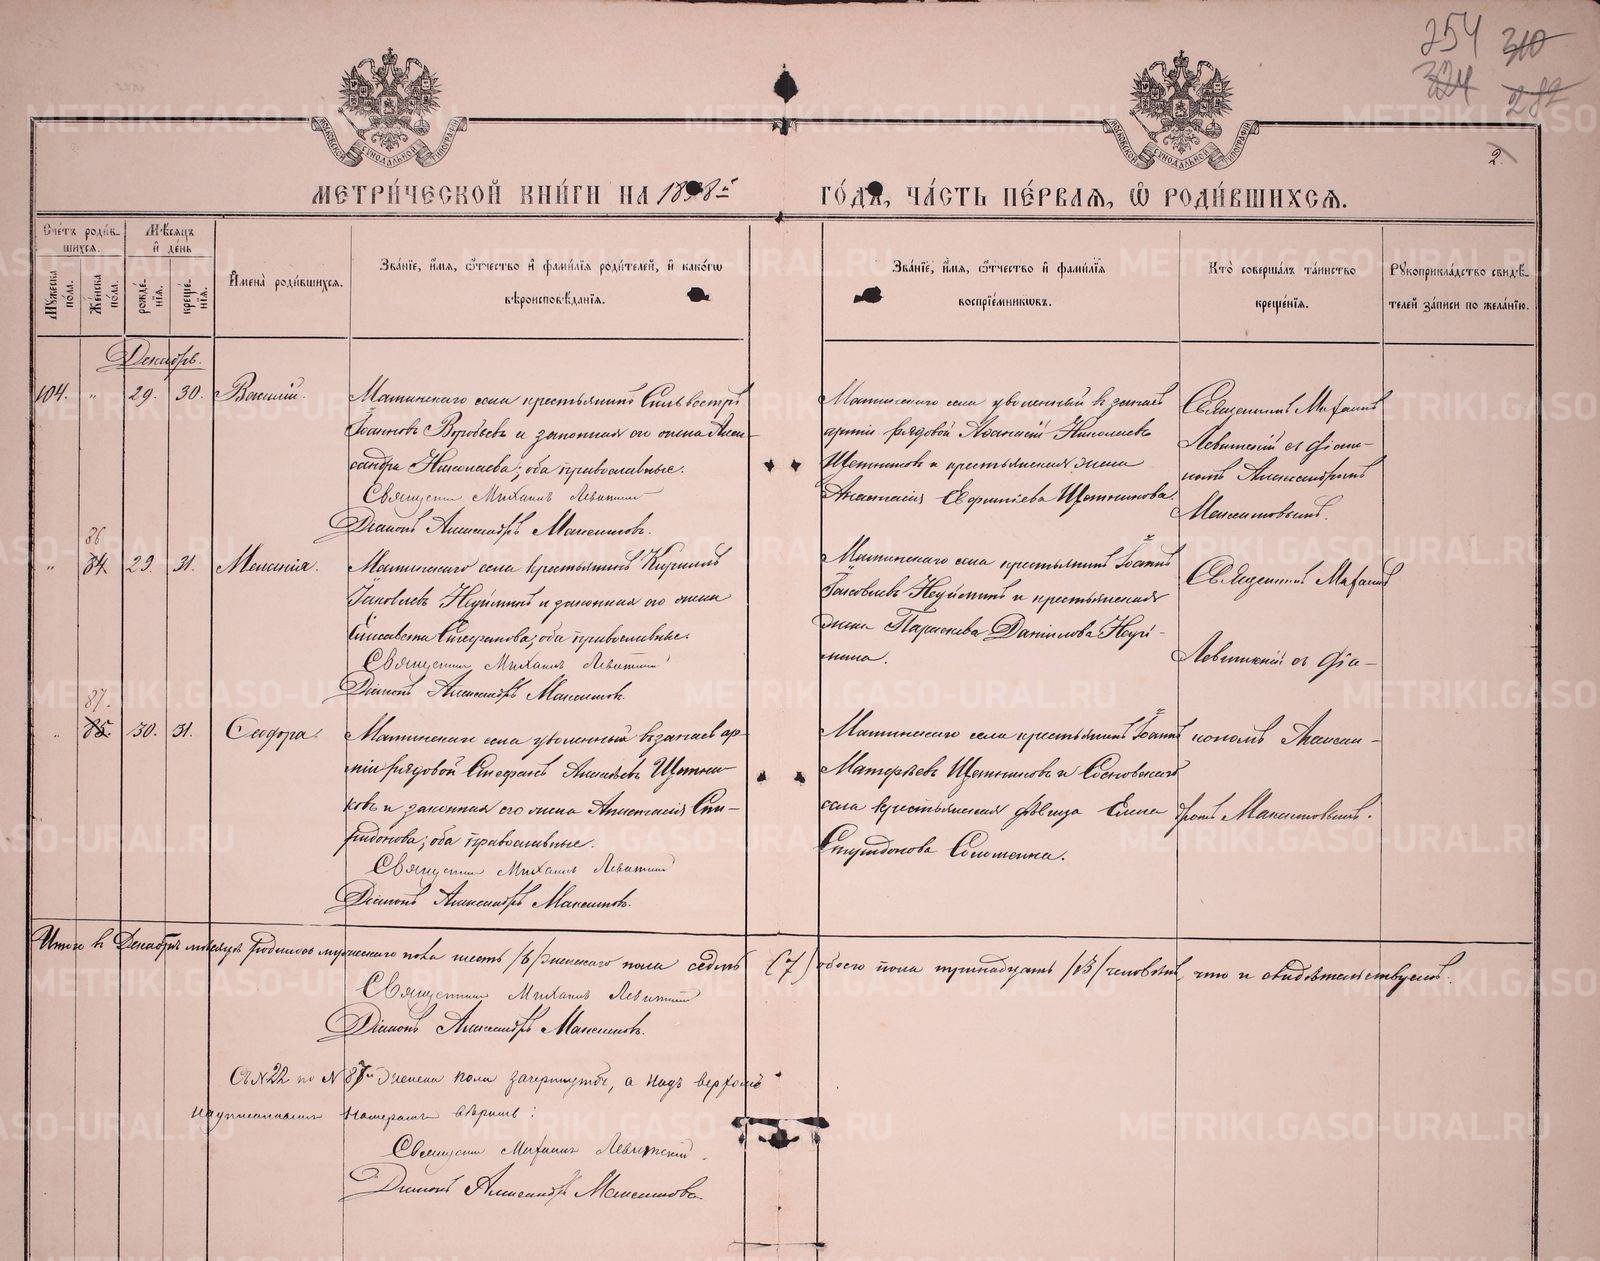 254 310
324 282
2.
МЕТРИ́ЧЕСКОЙ КНИ́ГИ НА 18 8й ГО́ДЪ, ЧА́СТЬ ПЕ́РВАЯ, Ѡ РОДИ́ВШИХСЯ.
Сче́тъ роди́в-
шихся.
Мѣ́сяцъ
и́ де́нь
Му́жеска по́ла.
Же́нска по́ла.
рожде́-
нія.
креще́-
нія.
И́мена̀ роди́вшихся.
Зва́ніе, и́мя, ѻ́тчество и́ фами́лія роди́телей, и́ како́гѡ
вѣроисповѣ́данія.
Зва́ніе, и́мя, ѻ́тчество и́ фами́лія
воспріе́мникѡвъ.
Кто̀ соверша́лъ та́инство
креще́нія.
Рꙋкоприкла́дство свидѣ́-
телей за́писи по жела́нію.
Декабрь.
104. „ 29. 30. Василій.
Маминскаго села крестьянинъ Сильвестръ
Іоанновъ Воробьевъ и законная его жена Алек-
сандра Николаева; оба православные.
Священникъ Михаилъ Левитскій
Діаконъ Александръ Максимовъ.
Маминскаго села уволенный въ запасъ
арміи рядовой Аѳанасій Николаевъ
Щетниковъ и крестьянская жена
Анастасія Евфиміева Щетникова.
Священникъ Михаилъ
Левитскій съ діа-
кономъ Александромъ
Максимовымъ.
86
„ 84. 29. 31. Меланія.
Маминскаго села крестьянинъ Кириллъ
Іаковлевъ Неуйминъ и законная его жена
Елисавета Стефанова; оба православные.
Священникъ Михаилъ Левитскій
Діаконъ Александръ Максимовъ.
Маминскаго села крестьянинъ Іоаннъ
Іаковлевъ Неуйминъ и крестьянская
жена Параскева Даніилова Неуй-
мина.
Священникъ Михаилъ
Левитскій съ діа-
87.
„ 85. 30. 31.
Маминскаго села уволенный въ запасъ ар-
міи рядовой Стефанъ Щетни-
ковъ и законная его жена Анастасія Спи-
ридонова; оба православные.
Священникъ Михаилъ Левитскій
Діаконъ Александръ Максимовъ.
Маминскаго села крестьянинъ Іоаннъ
Щетниковъ и Сосновскаго
села крестьянская дѣвица Елена
Спиридонова
кономъ Алексан-
дромъ Максимовымъ.
Итого въ Декабрѣ мѣсяцѣ родилось мужескаго пола шесть /6/ женскаго пола седмь (7) обоего пола тринадцать /13/ человѣкъ, что и свидѣтельствуемъ.
Священникъ Михаилъ Левитскій
Діаконъ Александръ Максимовъ.
Съ №22 по № 87й женска пола зачеркнутое, а надъ верхомъ
надписаннымъ номерамъ вѣрить:
Священникъ Михаилъ Левитскій.
Діаконъ Александръ Максимовъ
METRIKI.GASO-URAL.RU